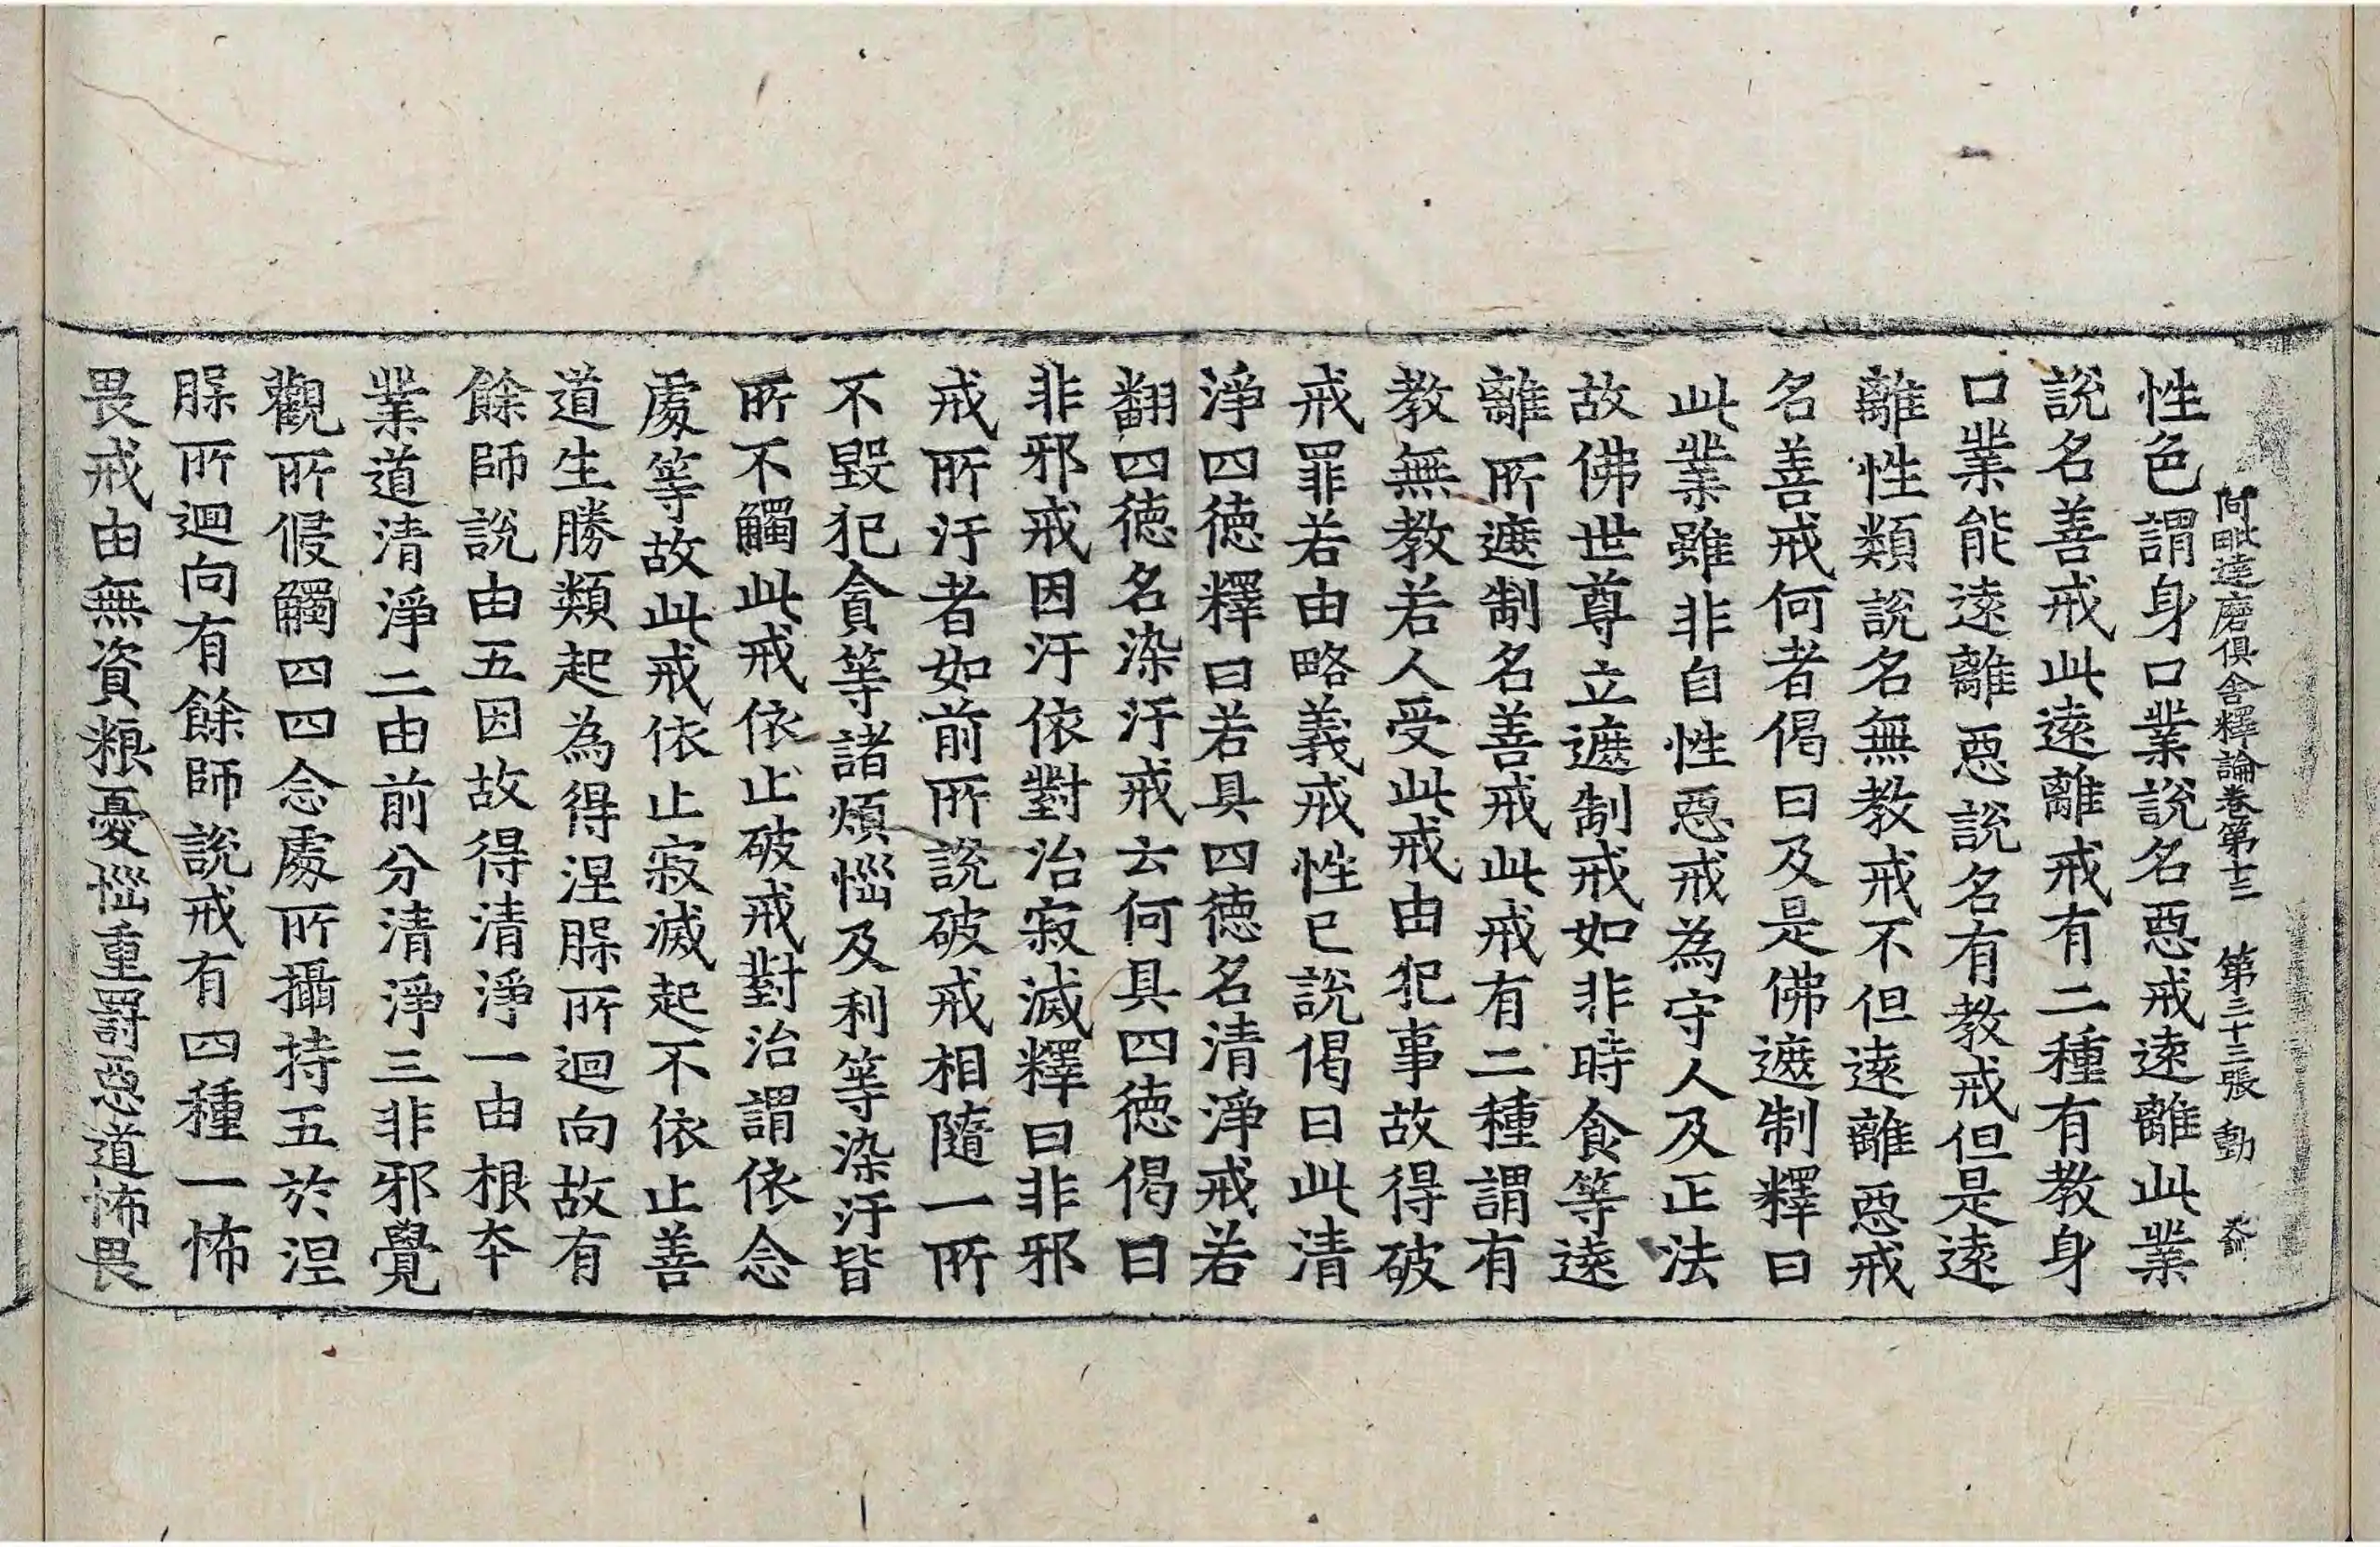 阿毗達磨俱舍釋論卷第十三 第三十三張 動
性色謂身口業說名惡戒遠離此業
說名善戒此遠離戒有二種有教身
口業能遠離惡說名有教戒但是遠
離性類說名無教戒不但遠離惡戒
名善戒何者偈曰及是佛遮制釋曰
此業雖非自性惡戒為守人及正法
故佛世尊立遮制戒如非時食等遠
離所遮制名善戒此戒有二種謂有
教無教若人受此戒由犯事故得破
戒罪若由略義戒性已說偈曰此清
淨四德釋曰若具四德名清淨戒若
翻四德名染汙戒云何具四德偈曰
非邪戒因汙依對治寂滅釋曰非邪
戒所汙者如前所說破戒相隨一所
不毀犯貪等諸煩惱及利等染汙皆
所不觸此戒依止破戒對治謂依念
處等故此戒依止寂滅起不依止善
道生勝類起為得涅槃所迴向故有
餘師說由五因故得清淨一由根夲
業道清淨二由前分清淨三非邪覺
觀所侵觸四四念處所攝持五於涅
槃所迴向有餘師說戒有四種一怖
畏戒由無資粮憂惱重罰惡道怖畏